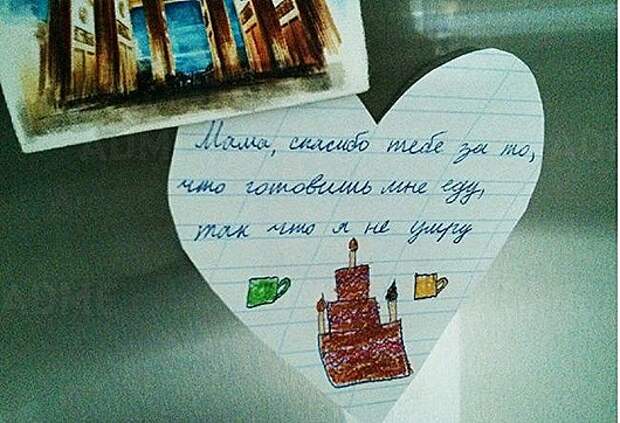 Мама, спасибо тебе за то,
что готовишь мне еду,
так что я не умру